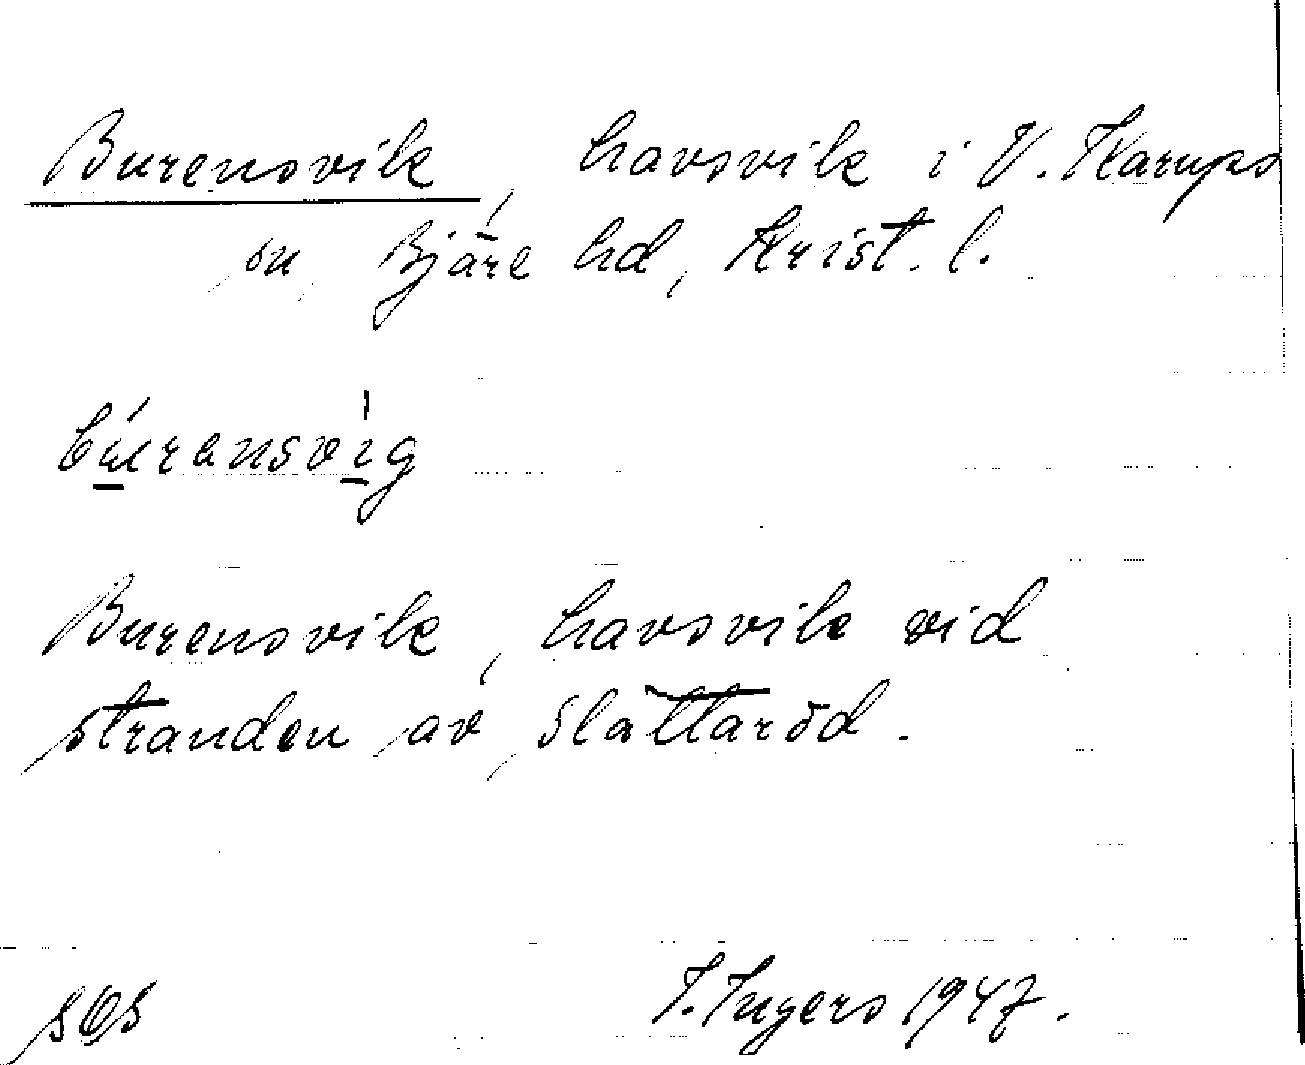 Burensvik, havsvik i V. Karups
sn, Bjäre hd, Krist. l.
búrənsvìg
Burensvik, havsvik vid
stranden av Slättaröd.
I. Ingers 1947.